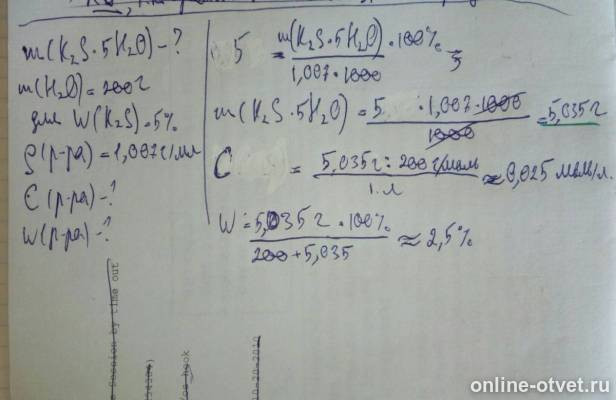 m(K₂S·5H₂O) - ?
m(H₂O) = 200г
для W(K₂S) = 5%
ρ(р-ра) = 1,007 г/мл
C(р-ра) - ?
W(р-ра) - ?
5 = m(K₂S·5H₂O)·100% / 1,007·1000
m(K₂S·5H₂O) = 5 · 1,007·1000 / 1000 = 5,035г
C = 5,035г : 200 г/моль / 1 л ≈ 0,025 моль/л.
W = 5,035г · 100% / 200 + 5,035 ≈ 2,5%
e session by time out
hook
online-otvet.ru